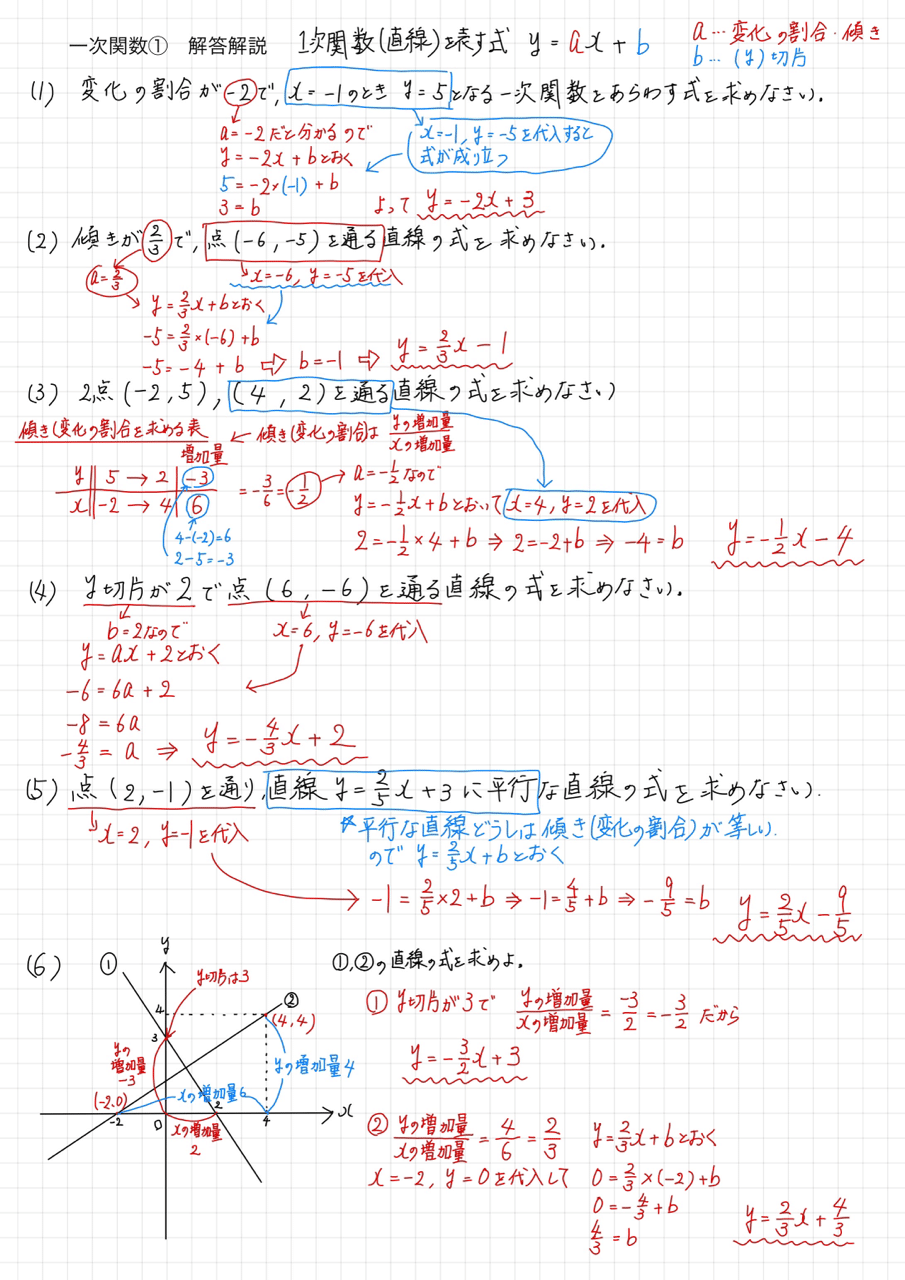 一次関数① 解答解説 1次関数(直線)を表す式 y=ax+b
a…変化の割合・傾き
b…(y)切片
(1) 変化の割合が-2で, x=-1のとき y=5となる一次関数をあらわす式を求めなさい.
a=-2だと分かるので
y=-2x+bとおく
5=-2×(-1)+b
3=b
x=-1, y=-5を代入すると
式が成り立つ
よって y=-2x+3
(2) 傾きが2/3で, 点(-6,-5)を通る直線の式を求めなさい.
a=2/3
x=-6, y=-5を代入
y=2/3x+bとおく
-5=2/3×(-6)+b
-5=-4+b ⇨ b=-1 ⇨ y=2/3x-1
(3) 2点(-2,5), (4,2)を通る直線の式を求めなさい
傾き(変化の割合を求める表
← 傾き(変化の割合)は yの増加量/xの増加量
増加量
y 5→2 -3
x -2→4 6
=-3/6=-1/2
4-(-2)=6
2-5=-3
a=-1/2なので
y=-1/2x+bとおいて x=4, y=2を代入
2=-1/2×4+b ⇒ 2=-2+b ⇒ -4=b
y=-1/2x-4
(4) y切片が2で点(6,-6)を通る直線の式を求めなさい.
b=2なので
x=6, y=-6を代入
y=ax+2とおく
-6=6a+2
-8=6a
-4/3=a ⇒ y=-4/3x+2
(5) 点(2,-1)を通り, 直線y=2/5x+3に平行な直線の式を求めなさい.
x=2, y=-1を代入
*平行な直線どうしは傾き(変化の割合)が等しい.
ので y=2/5x+bとおく
-1=2/5×2+b ⇒ -1=4/5+b ⇒ -9/5=b
y=2/5x-9/5
(6)
①,②の直線の式を求めよ.
①
y
y切片は3
②
4
(4,4)
3
yの
増加量
-3
yの増加量4
xの増加量6
(-2,0)
-2
0
2
4
x
xの増加量
2
① y切片が3で yの増加量/xの増加量=-3/2=-3/2だから
y=-3/2x+3
② yの増加量/xの増加量=4/6=2/3 y=2/3x+bとおく
x=-2, y=0を代入して 0=2/3×(-2)+b
0=-4/3+b
4/3=b
y=2/3x+4/3